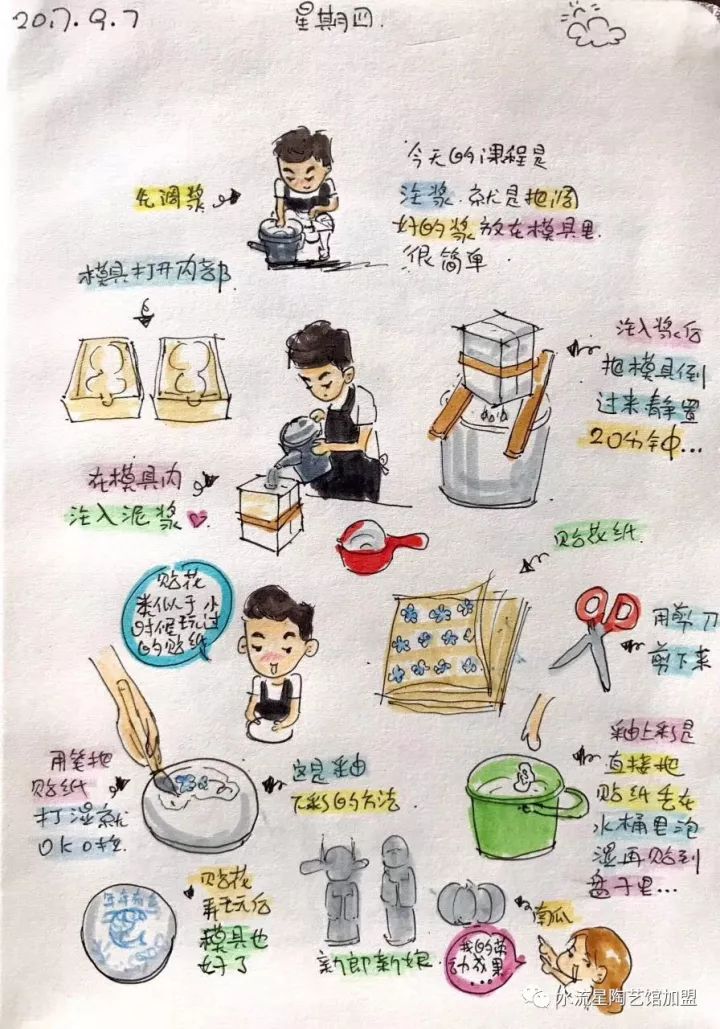 2017.9.7
星期四.
先调浆
今天的课程是
注浆.就是把调
好的浆放在模具里.
很简单.
模具打开内部
注入浆后
把模具倒
过来静置
20分钟...
在模具内
注入泥浆
贴花纸.
贴花
类似于小
时候玩过
的贴纸
用剪刀
剪下来
用笔把
贴纸
打湿就
OK啦.
这是釉
下彩的方法
釉上彩是
直接把
贴纸丢在
水桶里泡
湿再贴到
盘子里...
年年有鱼
贴花
弄玩后
模具也
好了
新郎新娘
南瓜
我的劳
动成果...
水流星陶艺馆加盟